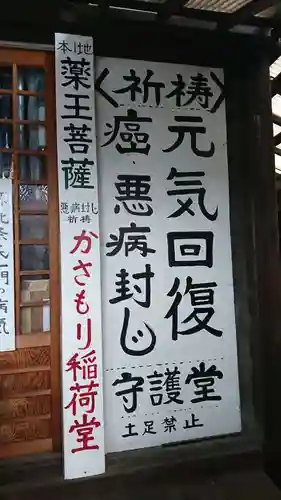 〈祈祷〉
元気回復
癌悪病封じ
守護堂
土足禁止
本地
薬王菩薩
悪病封じ
祈祷
かさもり稲荷堂